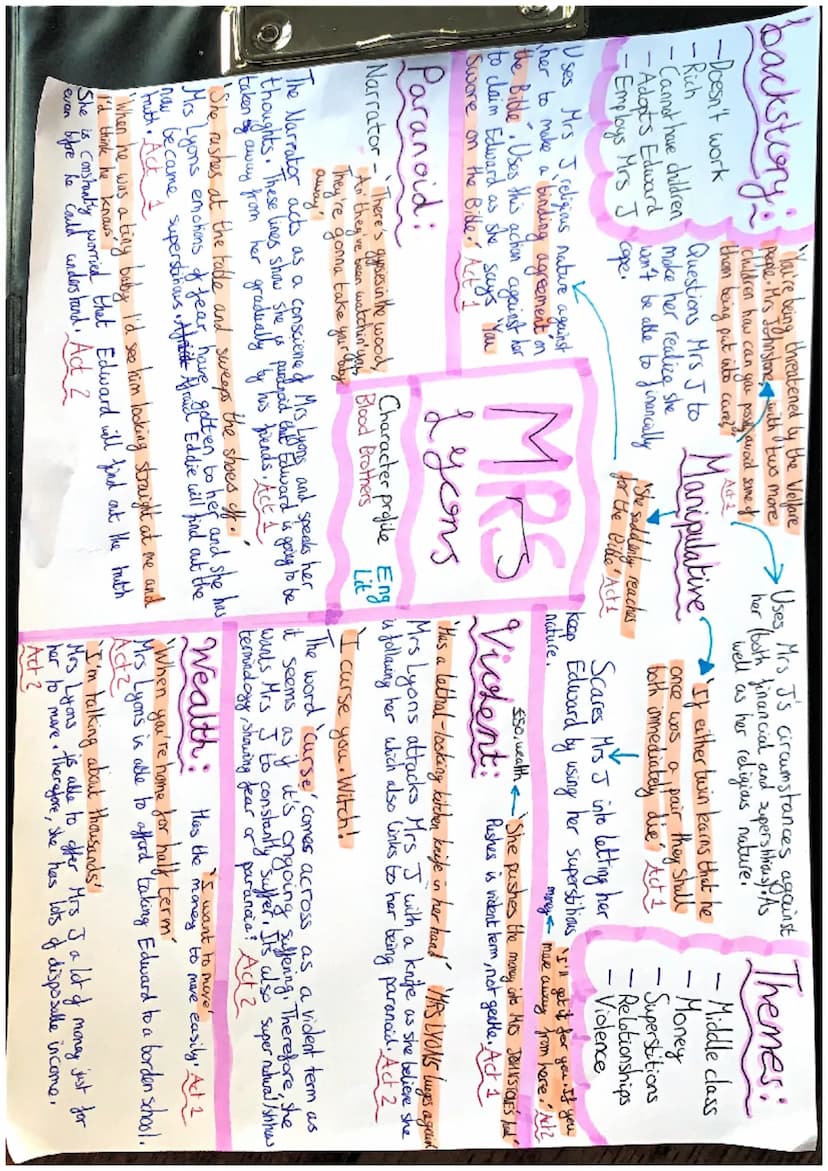 backstory:
- Doesn't work
- Rich
- Cannot have children
- Adopts Edward
- Employs Mrs J
'You're being threatened by the Welfare
people. Mrs Johnstone, with two more
children how can you possibly avoid some of
them being put into care?'
Act 1
Questions Mrs J to
make her realise she
won't be able to financially
cope.
Manipulative
Uses Mrs J's circumstances against
her (both financial and superstitious). As
well as her religious nature.
'If either twin learns that he
once was a pair they shall
both immediately die' Act 1
Scares Mrs J into letting her
keep Edward by using her superstitious
nature.
'She suddenly reaches
for the Bible' Act 1
Uses Mrs J religious nature against
her to make a 'binding agreement' on
the Bible'. Uses this action against her
to claim Edward as she says 'You
Swore on the Bible.' Act 1
Themes:
- Middle class
- Money
- Superstitions
- Relationships
- Violence
MRS
Lyons
Character profile
Blood Brothers
Eng
Lit
Paranoid:
Narrator - 'There's gypsies in the wood,
An' they've been watchin' you
They're gonna take your baby
away'
The Narrator acts as a conscience of Mrs Lyons and speaks her
thoughts. These lines show she is paranoid that Edward is going to be
taken away from her gradually by his friends. Act 1
'She rushes at the table and sweeps the shoes off.'
Mrs Lyons emotions of fear have gotten to her and she has
now became superstitious. Afraid Eddie will find out the
truth. Act 1
'When he was a tiny baby I'd see him looking straight at me and
I'd think he knows'
She is constantly worried that Edward will find out the truth
even before he could understand. Act 2
Violent:
$50, wealth
'She pushes the money into MRS JOHNSTONE'S hand'
Pushes is violent term, not gentle. Act 1
money
'I'll get it for you. If you
move away from here.' Act 2
'has a lethal-looking kitchen knife in her hand' 'MRS LYONS lunges again'
Mrs Lyons attacks Mrs J with a knife as she believe she
is following her which also links to her being paranoid. Act 2
'I curse you. Witch!'
The word 'curse' comes across as a violent term as
it seems as if it's ongoing suffering. Therefore, she
wants Mrs J to constantly suffer. It's also supernatural/shows
terminology, showing fear or paranoia. Act 2
Wealth:
'I want to move'
Has the money to move easily. Act 1
'When you're home for half term'
Mrs Lyons is able to afford taking Edward to a borden school.
Act 2
'I'm talking about thousands'
Mrs Lyons is able to offer Mrs J a lot of money just for
her to move. Therefore, she has lots of disposable income.
Act 2